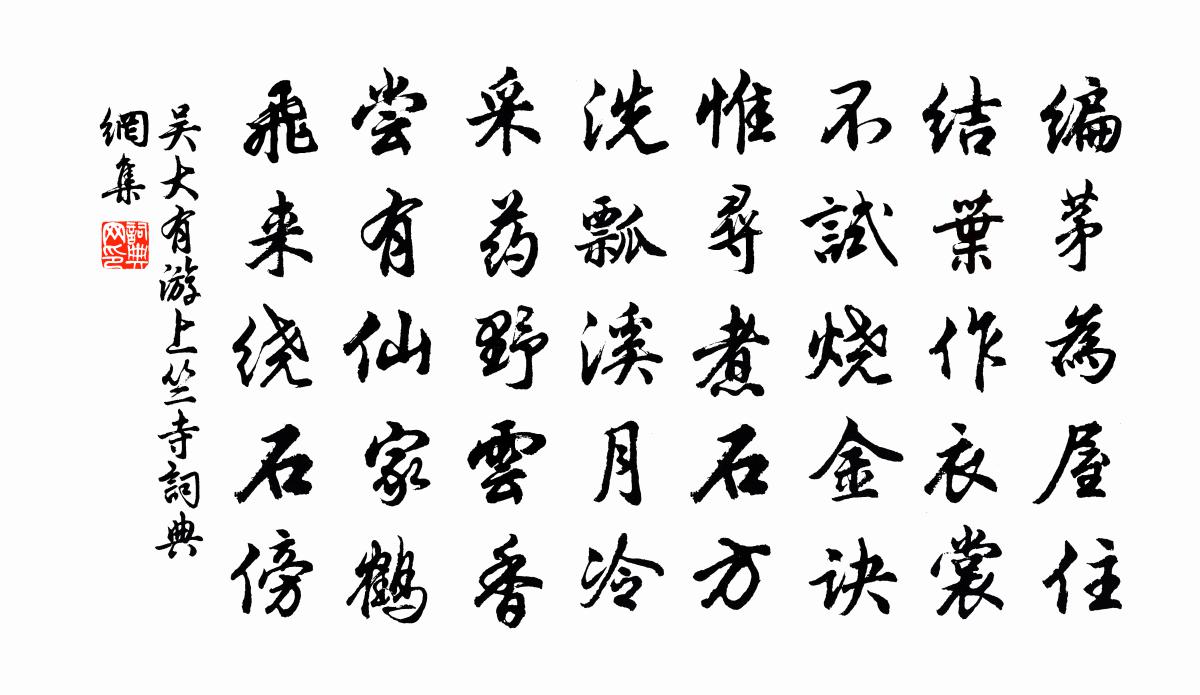 编茅為屋住
结葉作衣裳
不試烧金诀
惟尋煮石方
洗瓢溪月冷
采药野雲香
尝有仙家鹤
飛来绕石傍
吴大有游上竺寺詞典
網集
詞典网印